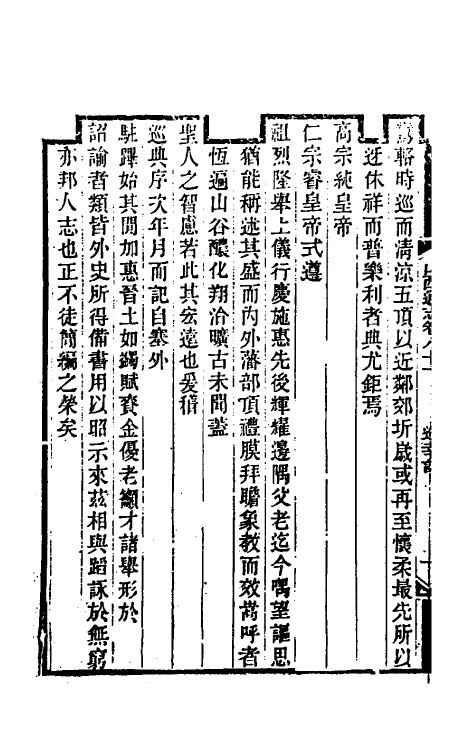 鸞輅時巡而淸涼五頂以近鄰郊圻歲或再至懷柔最先所以
迓休祥而普樂利者典尤鉅焉
高宗純皇帝
仁宗睿皇帝式遵
祖烈隆舉上儀行慶施惠先後輝耀邊隅父老迄今喁望謳思
猶能稱述其盛而內外藩部頂禮膜拜瞻象敎而效嵩呼者
恆遍山谷醲化翔洽曠古未聞蓋
聖人之智慮若此其宏遠也爰稽
巡典序次年月而記自塞外
駐蹕始其間加惠晉土如蠲賦賚金優老籲才諸舉形於
詔諭者類皆外史所得備書用以昭示來茲相與蹈詠於無窮
亦邦人志也正不徒簡編之榮矣
山西通志卷八十三
巡幸記